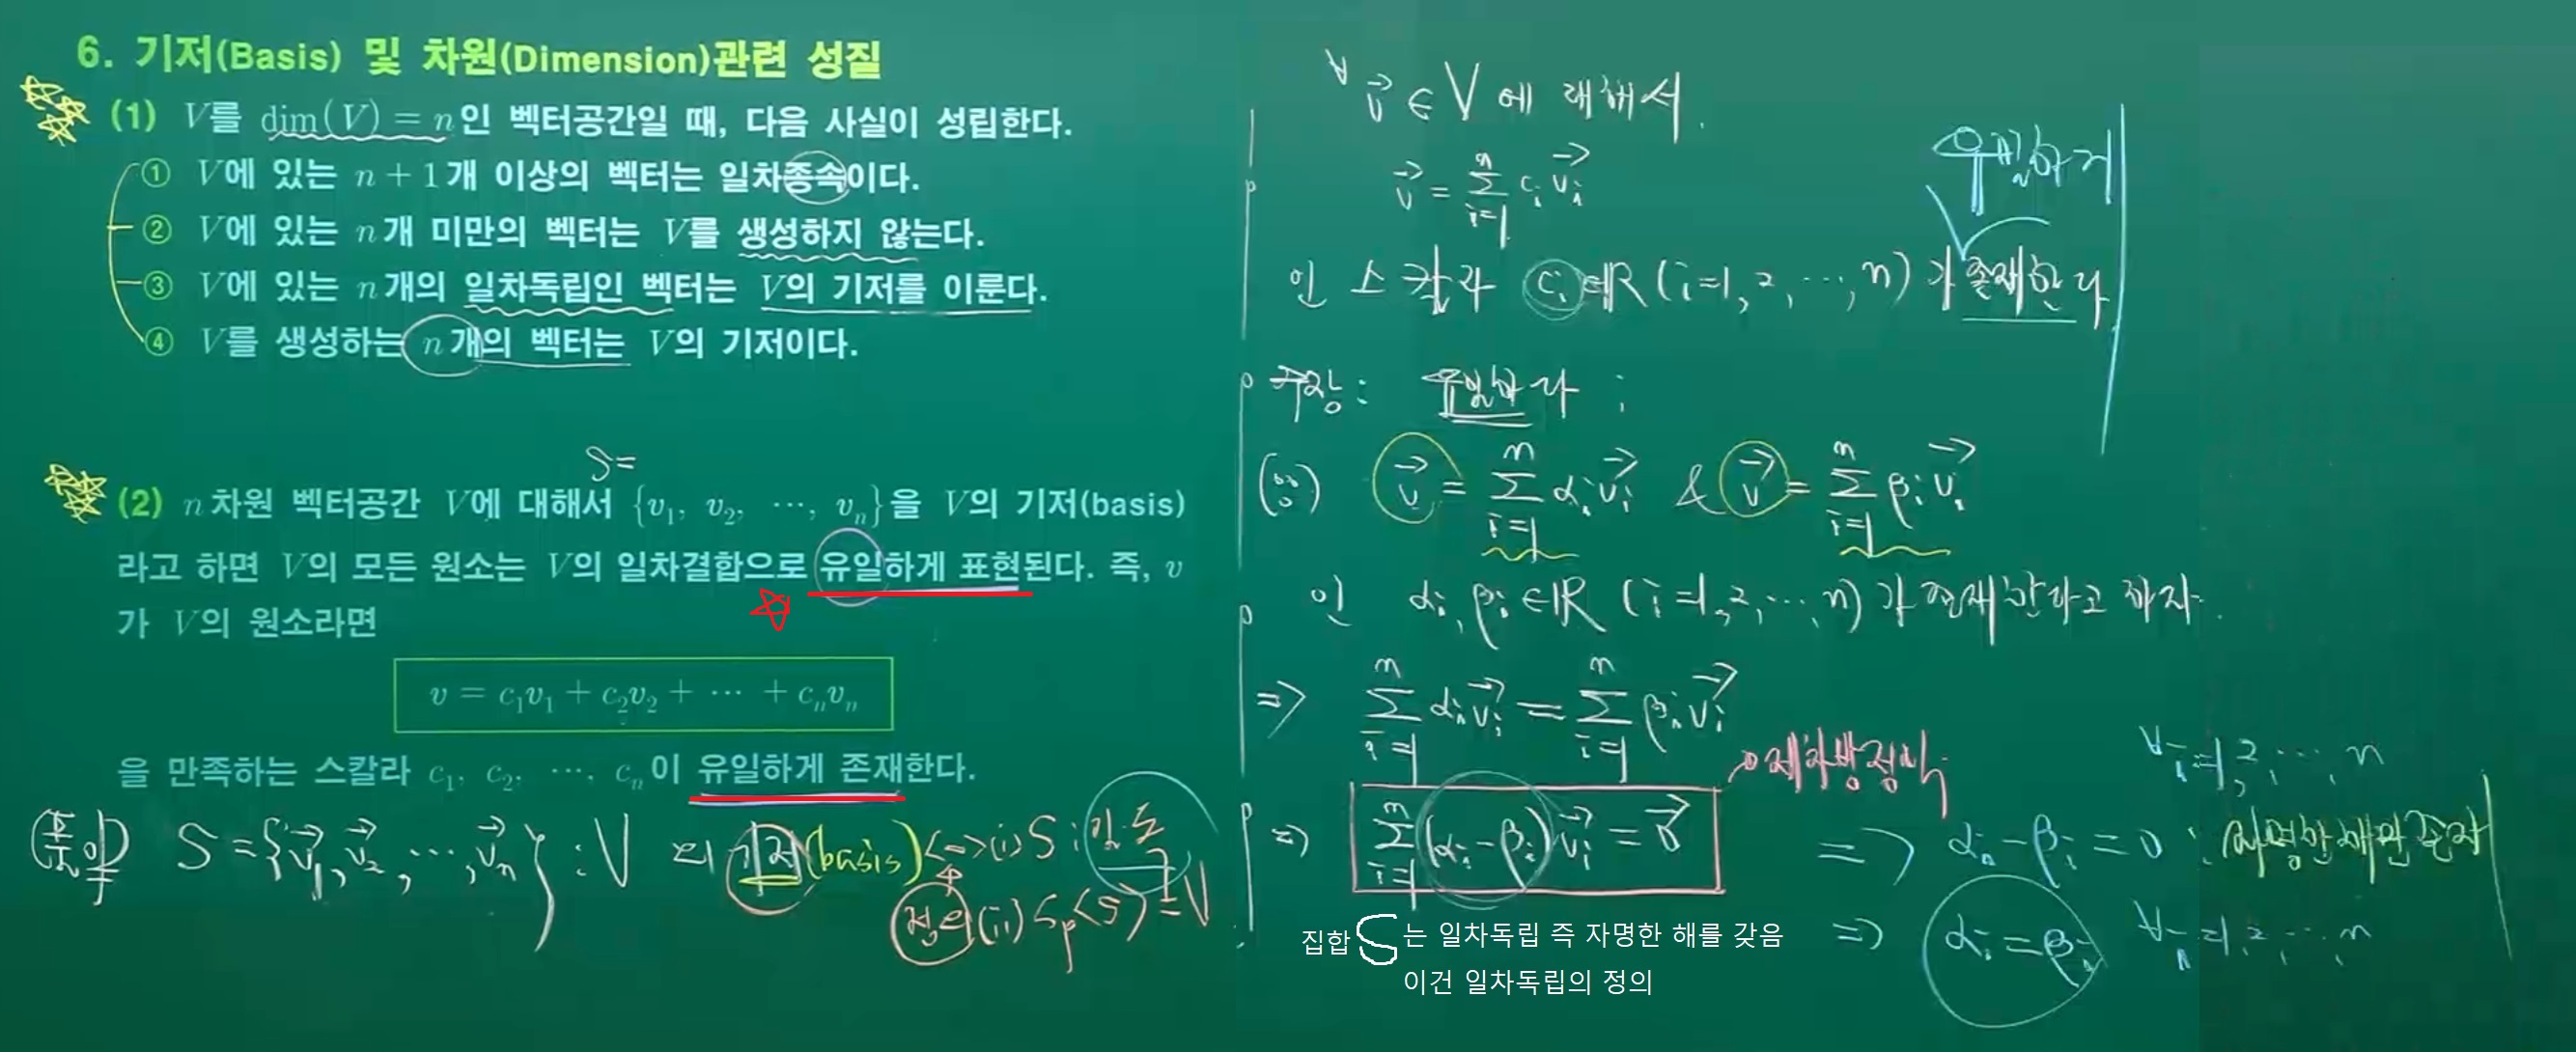 6. 기저(Basis) 및 차원(Dimension)관련 성질
(1) V를 dim(V) = n인 벡터공간일 때, 다음 사실이 성립한다.
① V에 있는 n + 1개 이상의 벡터는 일차종속이다.
② V에 있는 n개 미만의 벡터는 V를 생성하지 않는다.
③ V에 있는 n개의 일차독립인 벡터는 V의 기저를 이룬다.
④ V를 생성하는 n개의 벡터는 V의 기저이다.
S=
(2) n차원 벡터공간 V에 대해서 {v₁, v₂, ⋯, vₙ}을 V의 기저(basis)
라고 하면 V의 모든 원소는 V의 일차결합으로 유일하게 표현된다. 즉, v
가 V의 원소라면
v = c₁v₁ + c₂v₂ + ⋯ + cₙvₙ
을 만족하는 스칼라 c₁, c₂, ⋯, cₙ이 유일하게 존재한다.
S = {v⃗₁, v⃗₂, ⋯, v⃗ₙ} : V 의 기저(basis) ⟺ (i) S : 일.독
정의 (ii) Sp<S> = V
∀v⃗ ∈ V에 대해서.
유일하게
v⃗ = Σ_{i=1}^{n} cᵢ v⃗ᵢ
인 스칼라 cᵢ ∈ ℝ (i=1, 2, ⋯, n)가 존재한다
주장 : 유일하다 ;
(∵) v⃗ = Σ_{i=1}^{n} αᵢ v⃗ᵢ & v⃗ = Σ_{i=1}^{n} βᵢ v⃗ᵢ
인 αᵢ, βᵢ ∈ ℝ (i=1, 2, ⋯, n)가 존재한다고 하자.
⇒ Σ_{i=1}^{n} αᵢ v⃗ᵢ = Σ_{i=1}^{n} βᵢ v⃗ᵢ
제차방정식
⇒ Σ_{i=1}^{n} (αᵢ - βᵢ) v⃗ᵢ = 0⃗
∀i=1, 2, ⋯, n
⇒ αᵢ - βᵢ = 0 : 자명한 해만 존재
⇒ αᵢ = βᵢ ∀i=1, 2, ⋯, n
집합 S는 일차독립 즉 자명한 해를 갖음
이건 일차독립의 정의